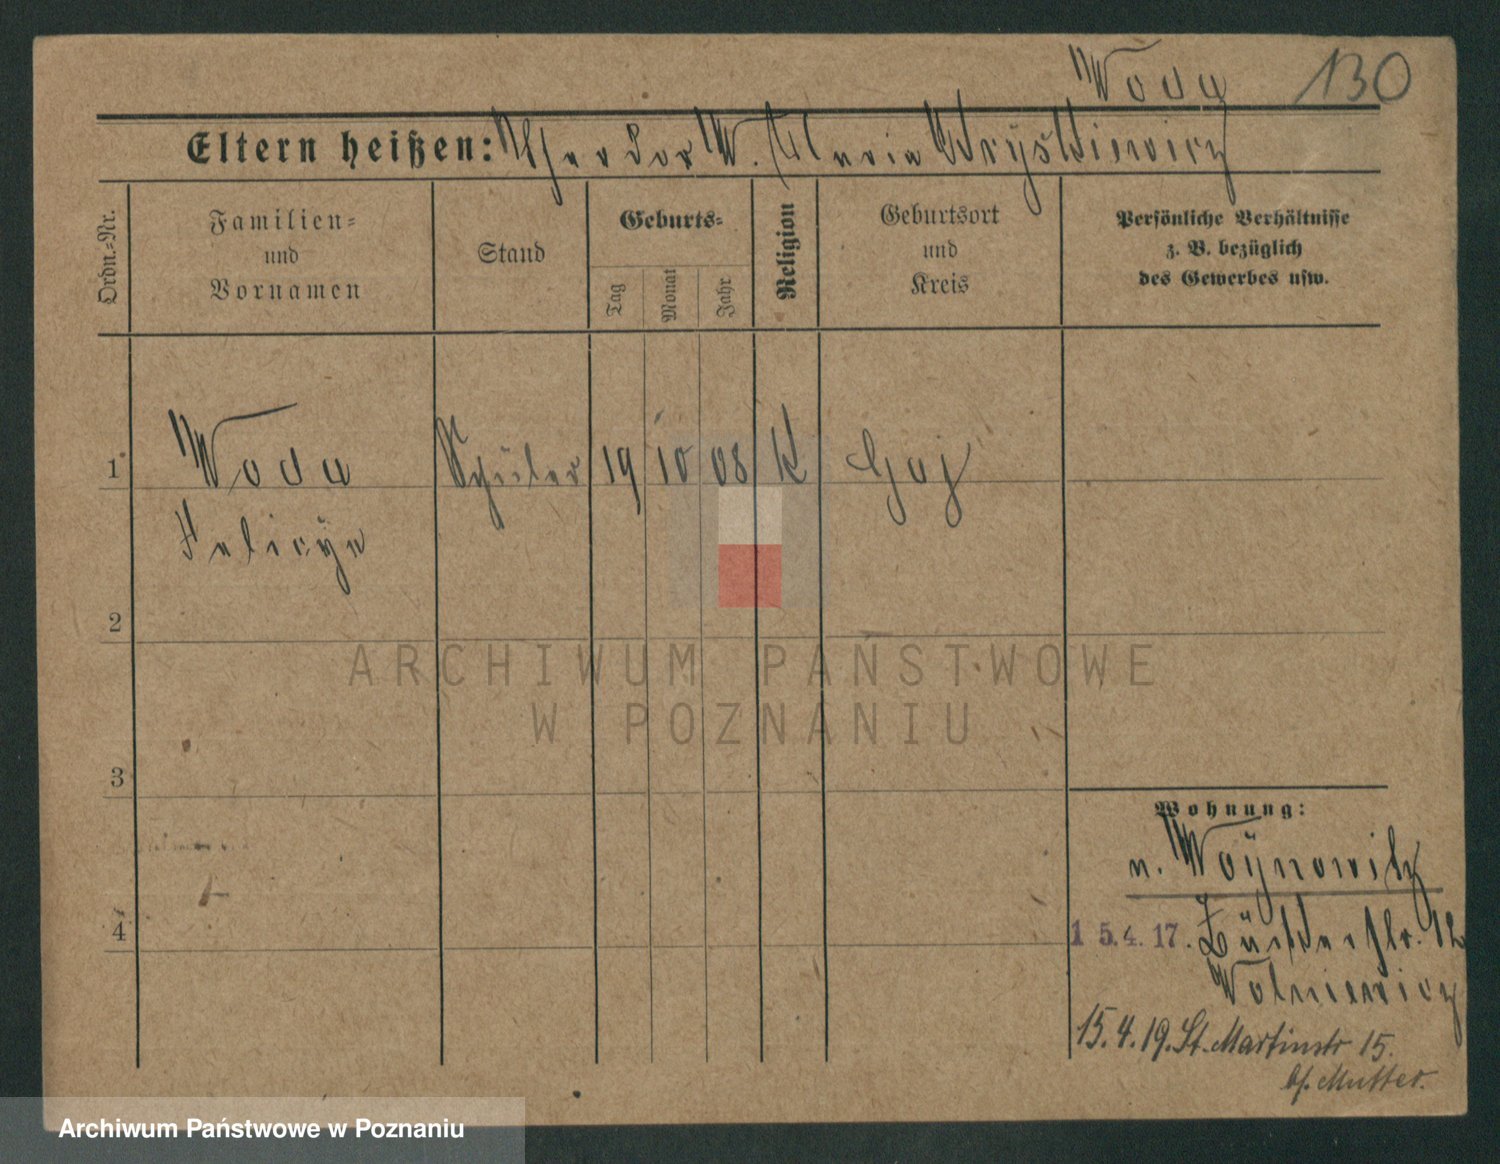 Woda 130
Eltern heißen: Theodor W. Maria Kryskiewicz
Ordn.=Nr.
Familien=
und
Vornamen
Stand
Geburts=
Tag
Monat
Jahr
Religion
Geburtsort
und
Kreis
Persönliche Verhältnisse
z. B. bezüglich
des Gewerbes usw.
1 Woda Schüler 19 10 08 K Gaj
Felicya
2
ARCHIWUM PAŃSTWOWE
W POZNANIU
3
Wohnung:
n. Woynowitz
4
1 5. 4. 17. str. 12
Wolniewicz
15. 4. 19. St. Martinstr 15.
b/. Mutter.
Archiwum Państwowe w Poznaniu